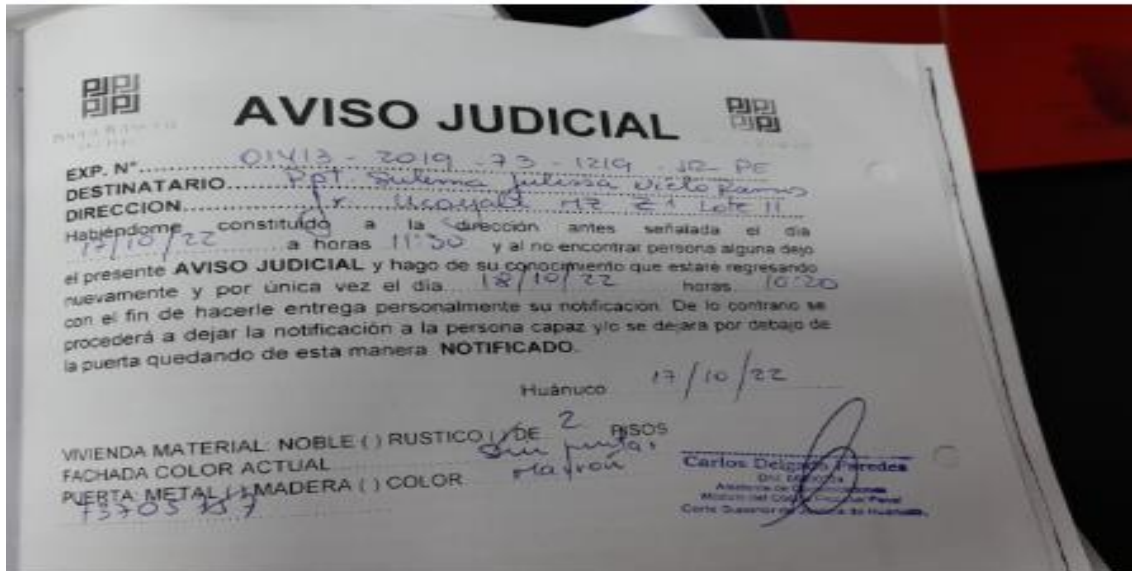 PJ PJ
PJ PJ
AVISO JUDICIAL
PJ PJ
PJ PJ
EXP. N°.......... 01413 - 2019 - 73 - 1219 - JR - PE
DESTINATARIO.......... Ppt. Sulema Julissa Vielo Ramos
DIRECCION.......... Jr. Ucayali Mz Z1 Lote 11
Habiéndome constituido a la dirección antes señalada el dia
17/10/22 a horas 11:30 y al no encontrar persona alguna dejo
el presente AVISO JUDICIAL y hago de su conocimiento que estaré regresando
nuevamente y por única vez el día 18/10/22 horas 10:20
con el fin de hacerle entrega personalmente su notificación. De lo contrario se
procederá a dejar la notificación a la persona capaz y/o se dejara por debajo de
la puerta quedando de esta manera NOTIFICADO.
Huánuco 17/10/22
VIVIENDA MATERIAL: NOBLE ( ) RUSTICO ( ) DE 2 PISOS
FACHADA COLOR ACTUAL Sin pintar
PUERTA: METAL ( ) MADERA ( ) COLOR Marrón
73705757
Carlos Delgado Paredes
Corte Superior de Justicia de Huánuco